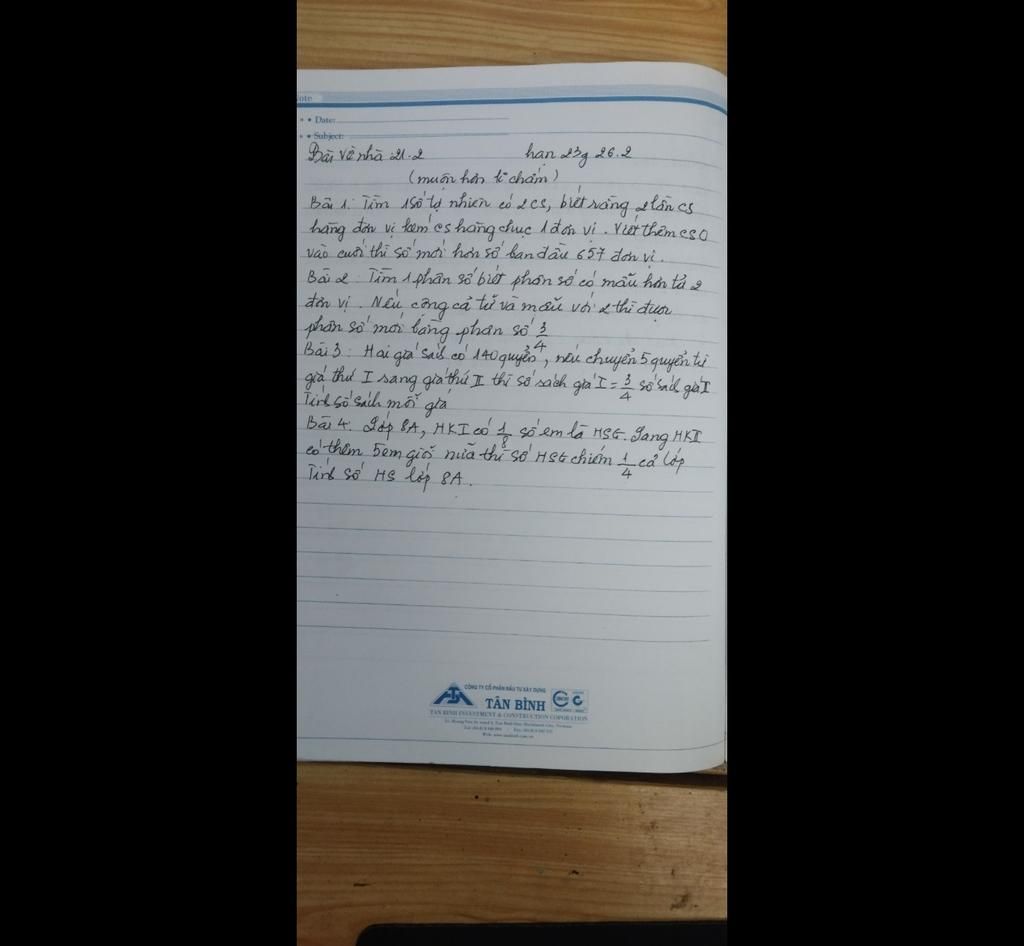 Note
Date:
Subject:
Bài về nhà 21.2 hạn 23g 26.2
(muộn hơn k chấm)
Bài 1: Tìm 1 số tự nhiên có 2 CS, biết rằng 2 lần CS
hàng đơn vị kém CS hàng chục 1 đơn vị. Viết thêm CS 0
vào cuối thì số mới hơn số ban đầu 657 đơn vị.
Bài 2: Tìm 1 phân số biết phân số có mẫu hơn tử 2
đơn vị. Nếu cộng cả tử và mẫu với 2 thì được
phân số mới bằng phân số 3/4
Bài 3: Hai giá sách có 140 quyển, nếu chuyển 5 quyển từ
giá thứ I sang giá thứ II thì số sách giá I = 3/4 số sách giá II
Tính số sách mỗi giá
Bài 4. Lớp 8A, HKI có 1/8 số em là HSG. Sang HKII
có thêm 5 em giỏi nữa thì số HSG chiếm 1/4 cả lớp
Tính số HS lớp 8A.
CÔNG TY CỔ PHẦN ĐẦU TƯ XÂY DỰNG
TÂN BÌNH
TAN BINH INVESTMENT & CONSTRUCTION COPORATION